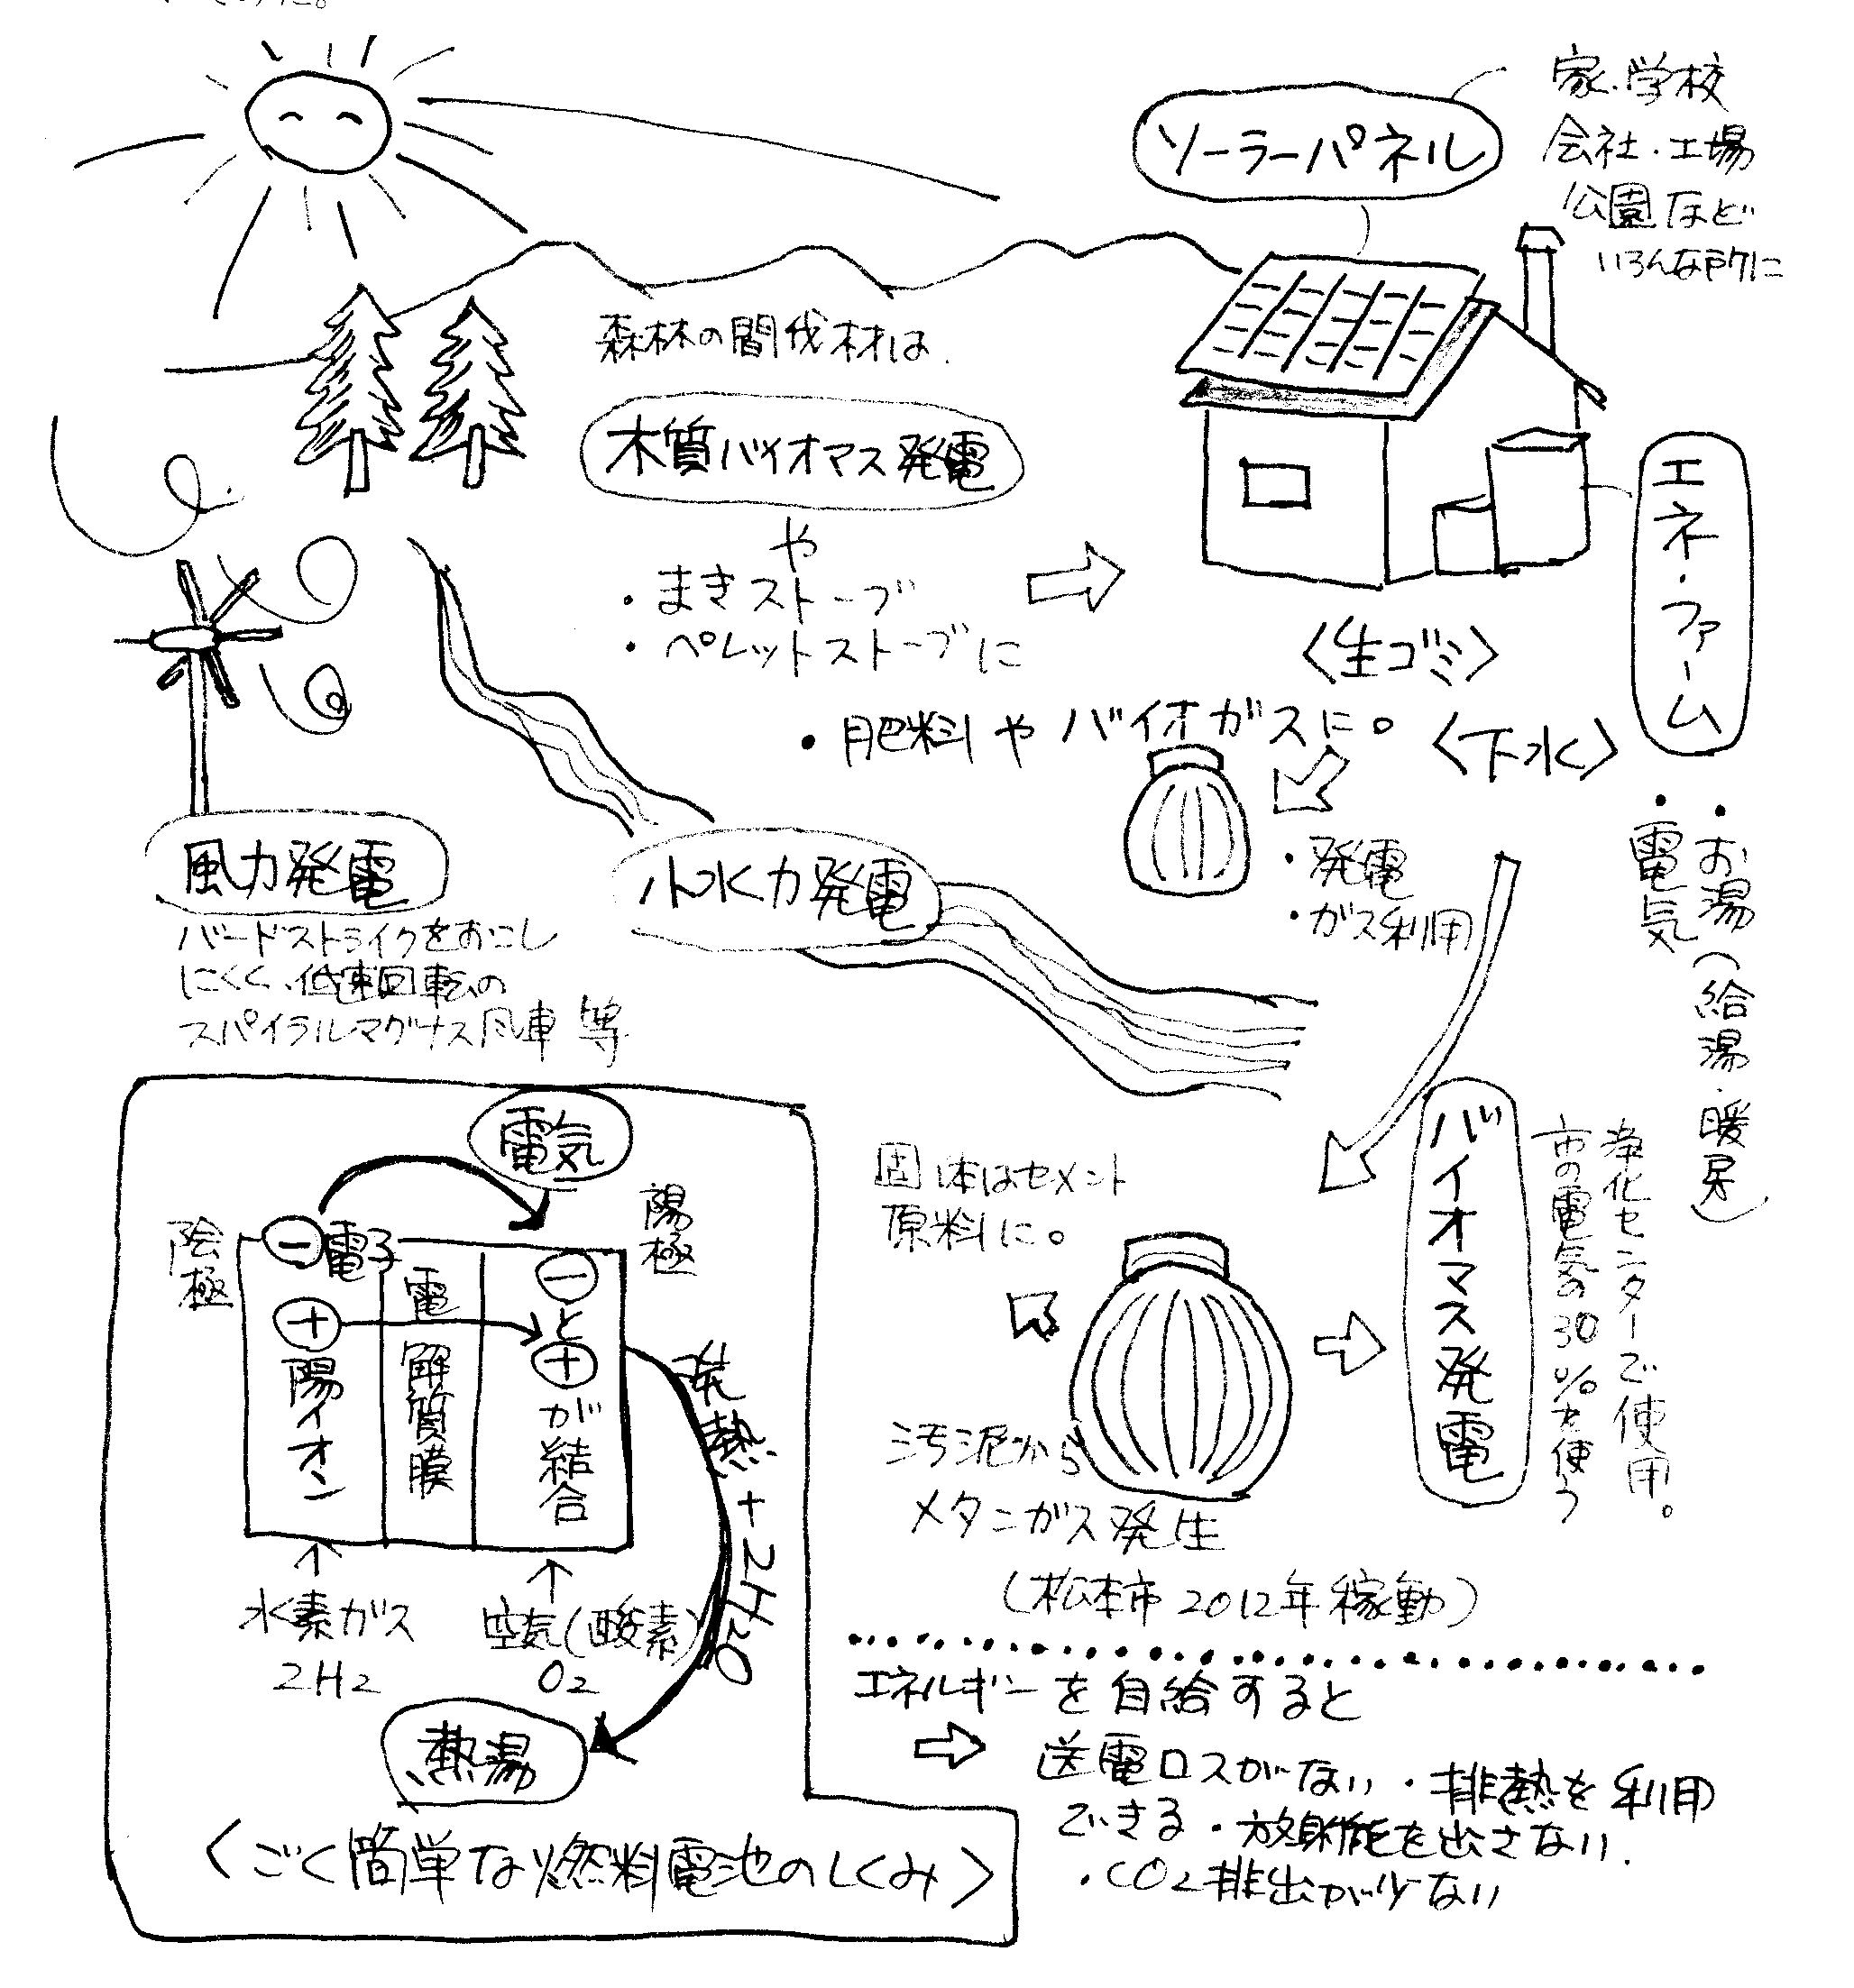 ソーラーパネル
家・学校
会社・工場
公園など
いろんな所に
森林の間伐材は
木質バイオマス発電
や
・まきストーブ
・ペレットストーブに
エネ・ファーム
・お湯(給湯・暖房)
・電気
〈生ゴミ〉
・肥料やバイオガスに。
〈下水〉
・発電
・ガス利用
風力発電
バードストライクをおこし
にくく、低速回転の
スパイラルマグナス風車 等
小水力発電
バイオマス発電
浄化センターで使用。
市の電気の30%を使う
固体はセメント
原料に。
汚泥から
メタンガス発生
(松本市2012年稼動)
電気
陰極
⊖電子
陽極
⊕陽イオン
電解質膜
⊖と⊕が結合
発熱+2H2O
水素ガス
2H2
空気(酸素)
O2
熱湯
〈ごく簡単な燃料電池のしくみ〉
エネルギーを自給すると
送電ロスがない・排熱を利用
できる・放射能を出さない
・CO2排出が少ない